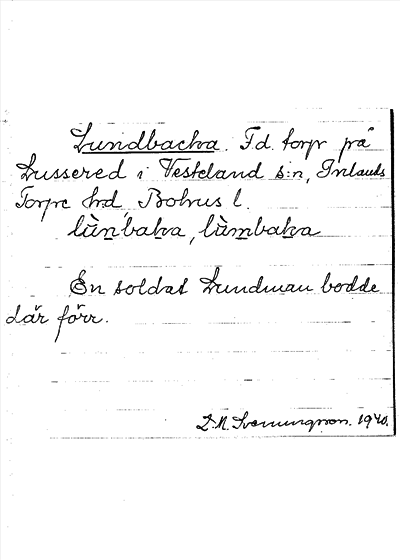 Lundbacka. F.d. torp på
Lussered i Vesterland s:n, Inlands
Torpe hd, Bohus l.
lùnbaka, lùmbaka
En soldat Lundman bodde
där förr.
D.N. Svenungsson. 1940.